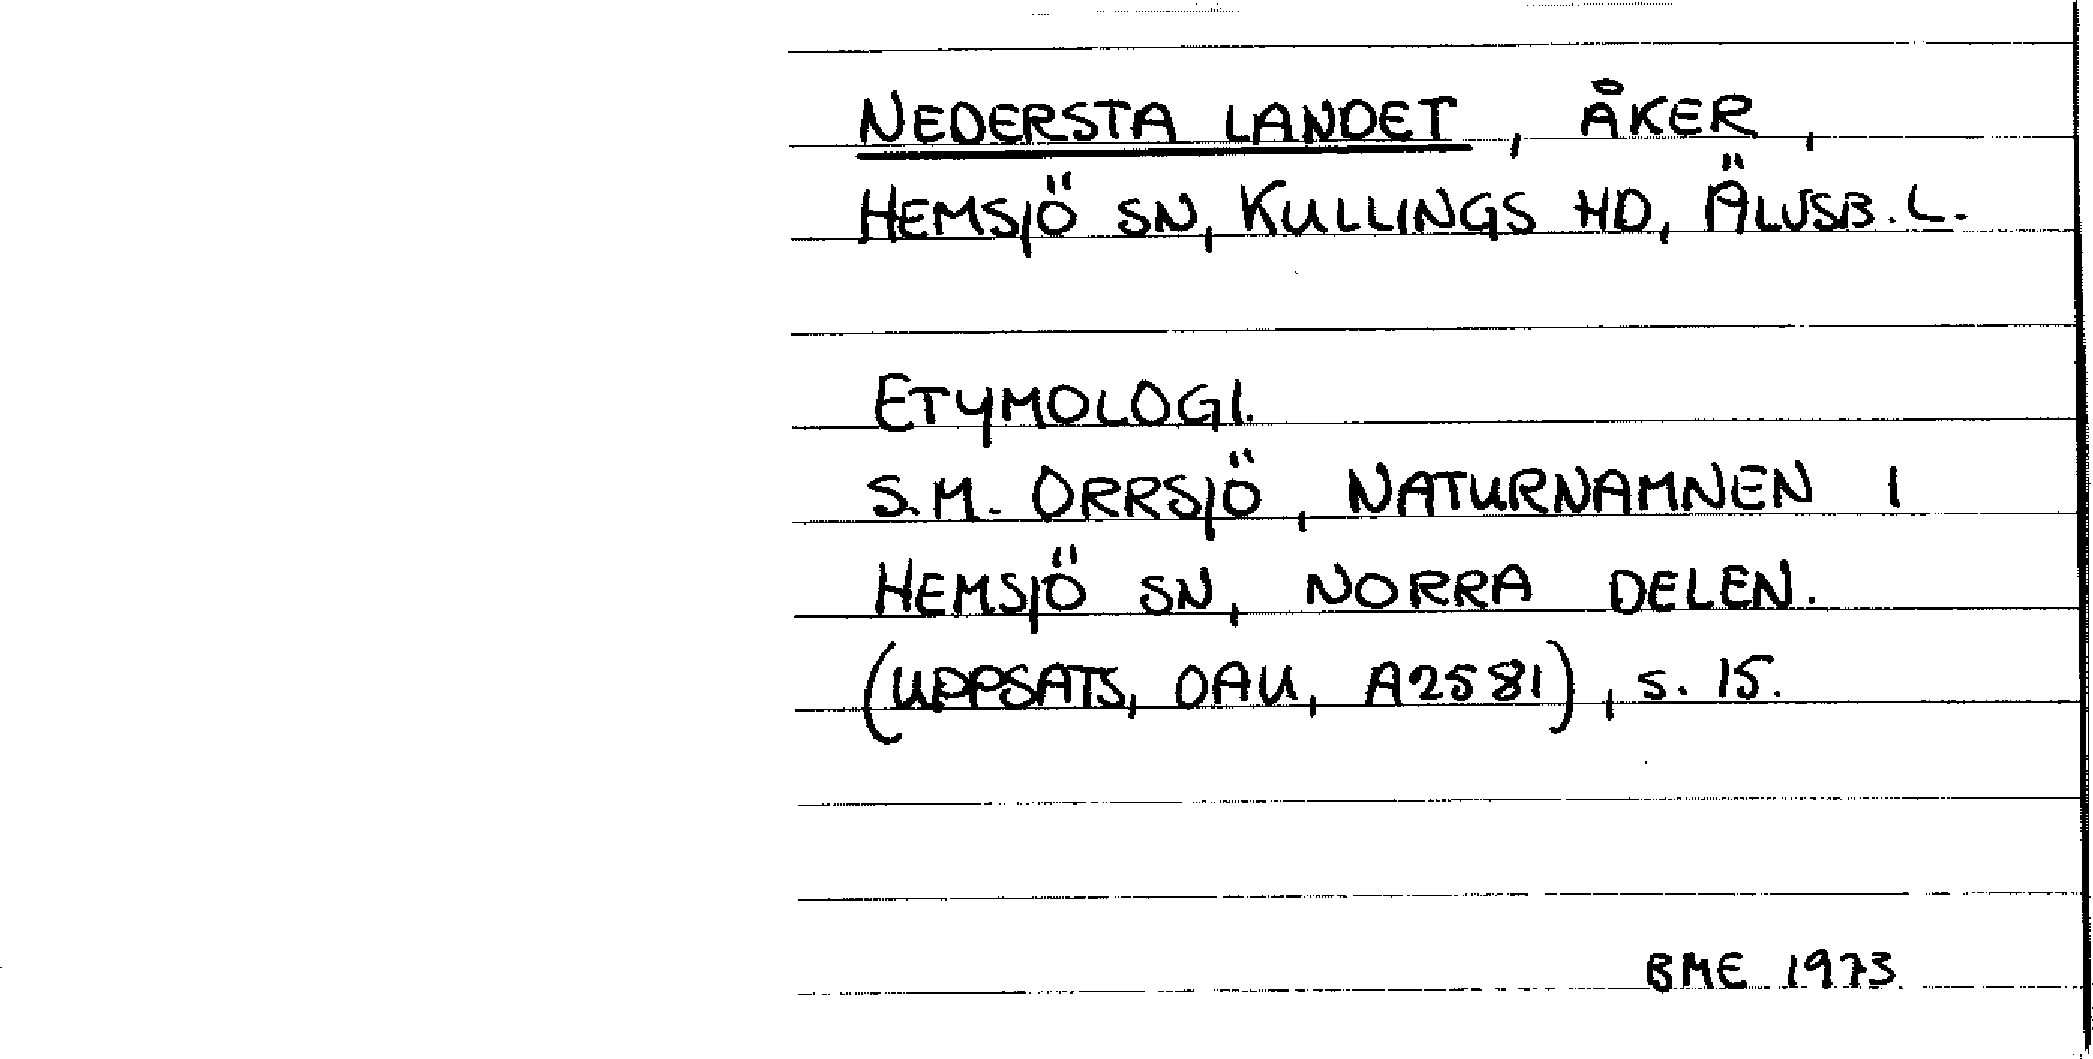 NEDERSTA LANDET, ÅKER,
HEMSJÖ SN, KULLINGS HD, ÄLVSB. L.
ETYMOLOGI.
S.M. ORRSJÖ, NATURNAMNEN I
HEMSJÖ SN, NORRA DELEN.
(UPPSATS, OAU, A2581), s. 15.
BME 1973